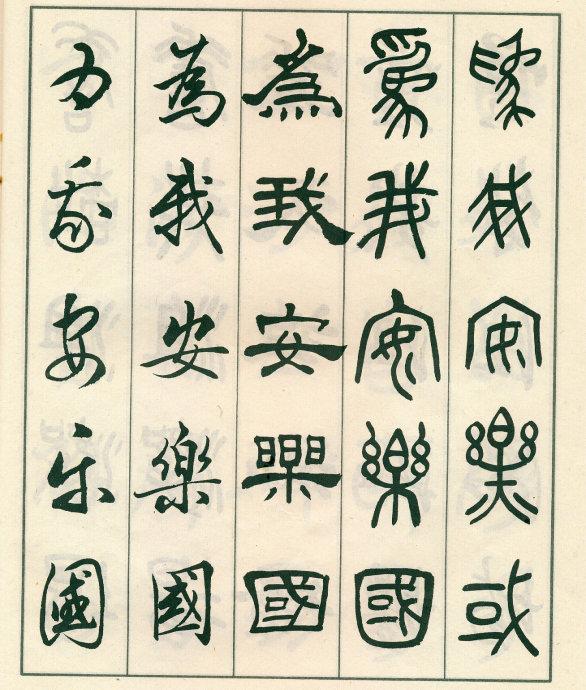 為我安樂或
為我安樂國
為我安樂國
為我安樂國
为我安乐國